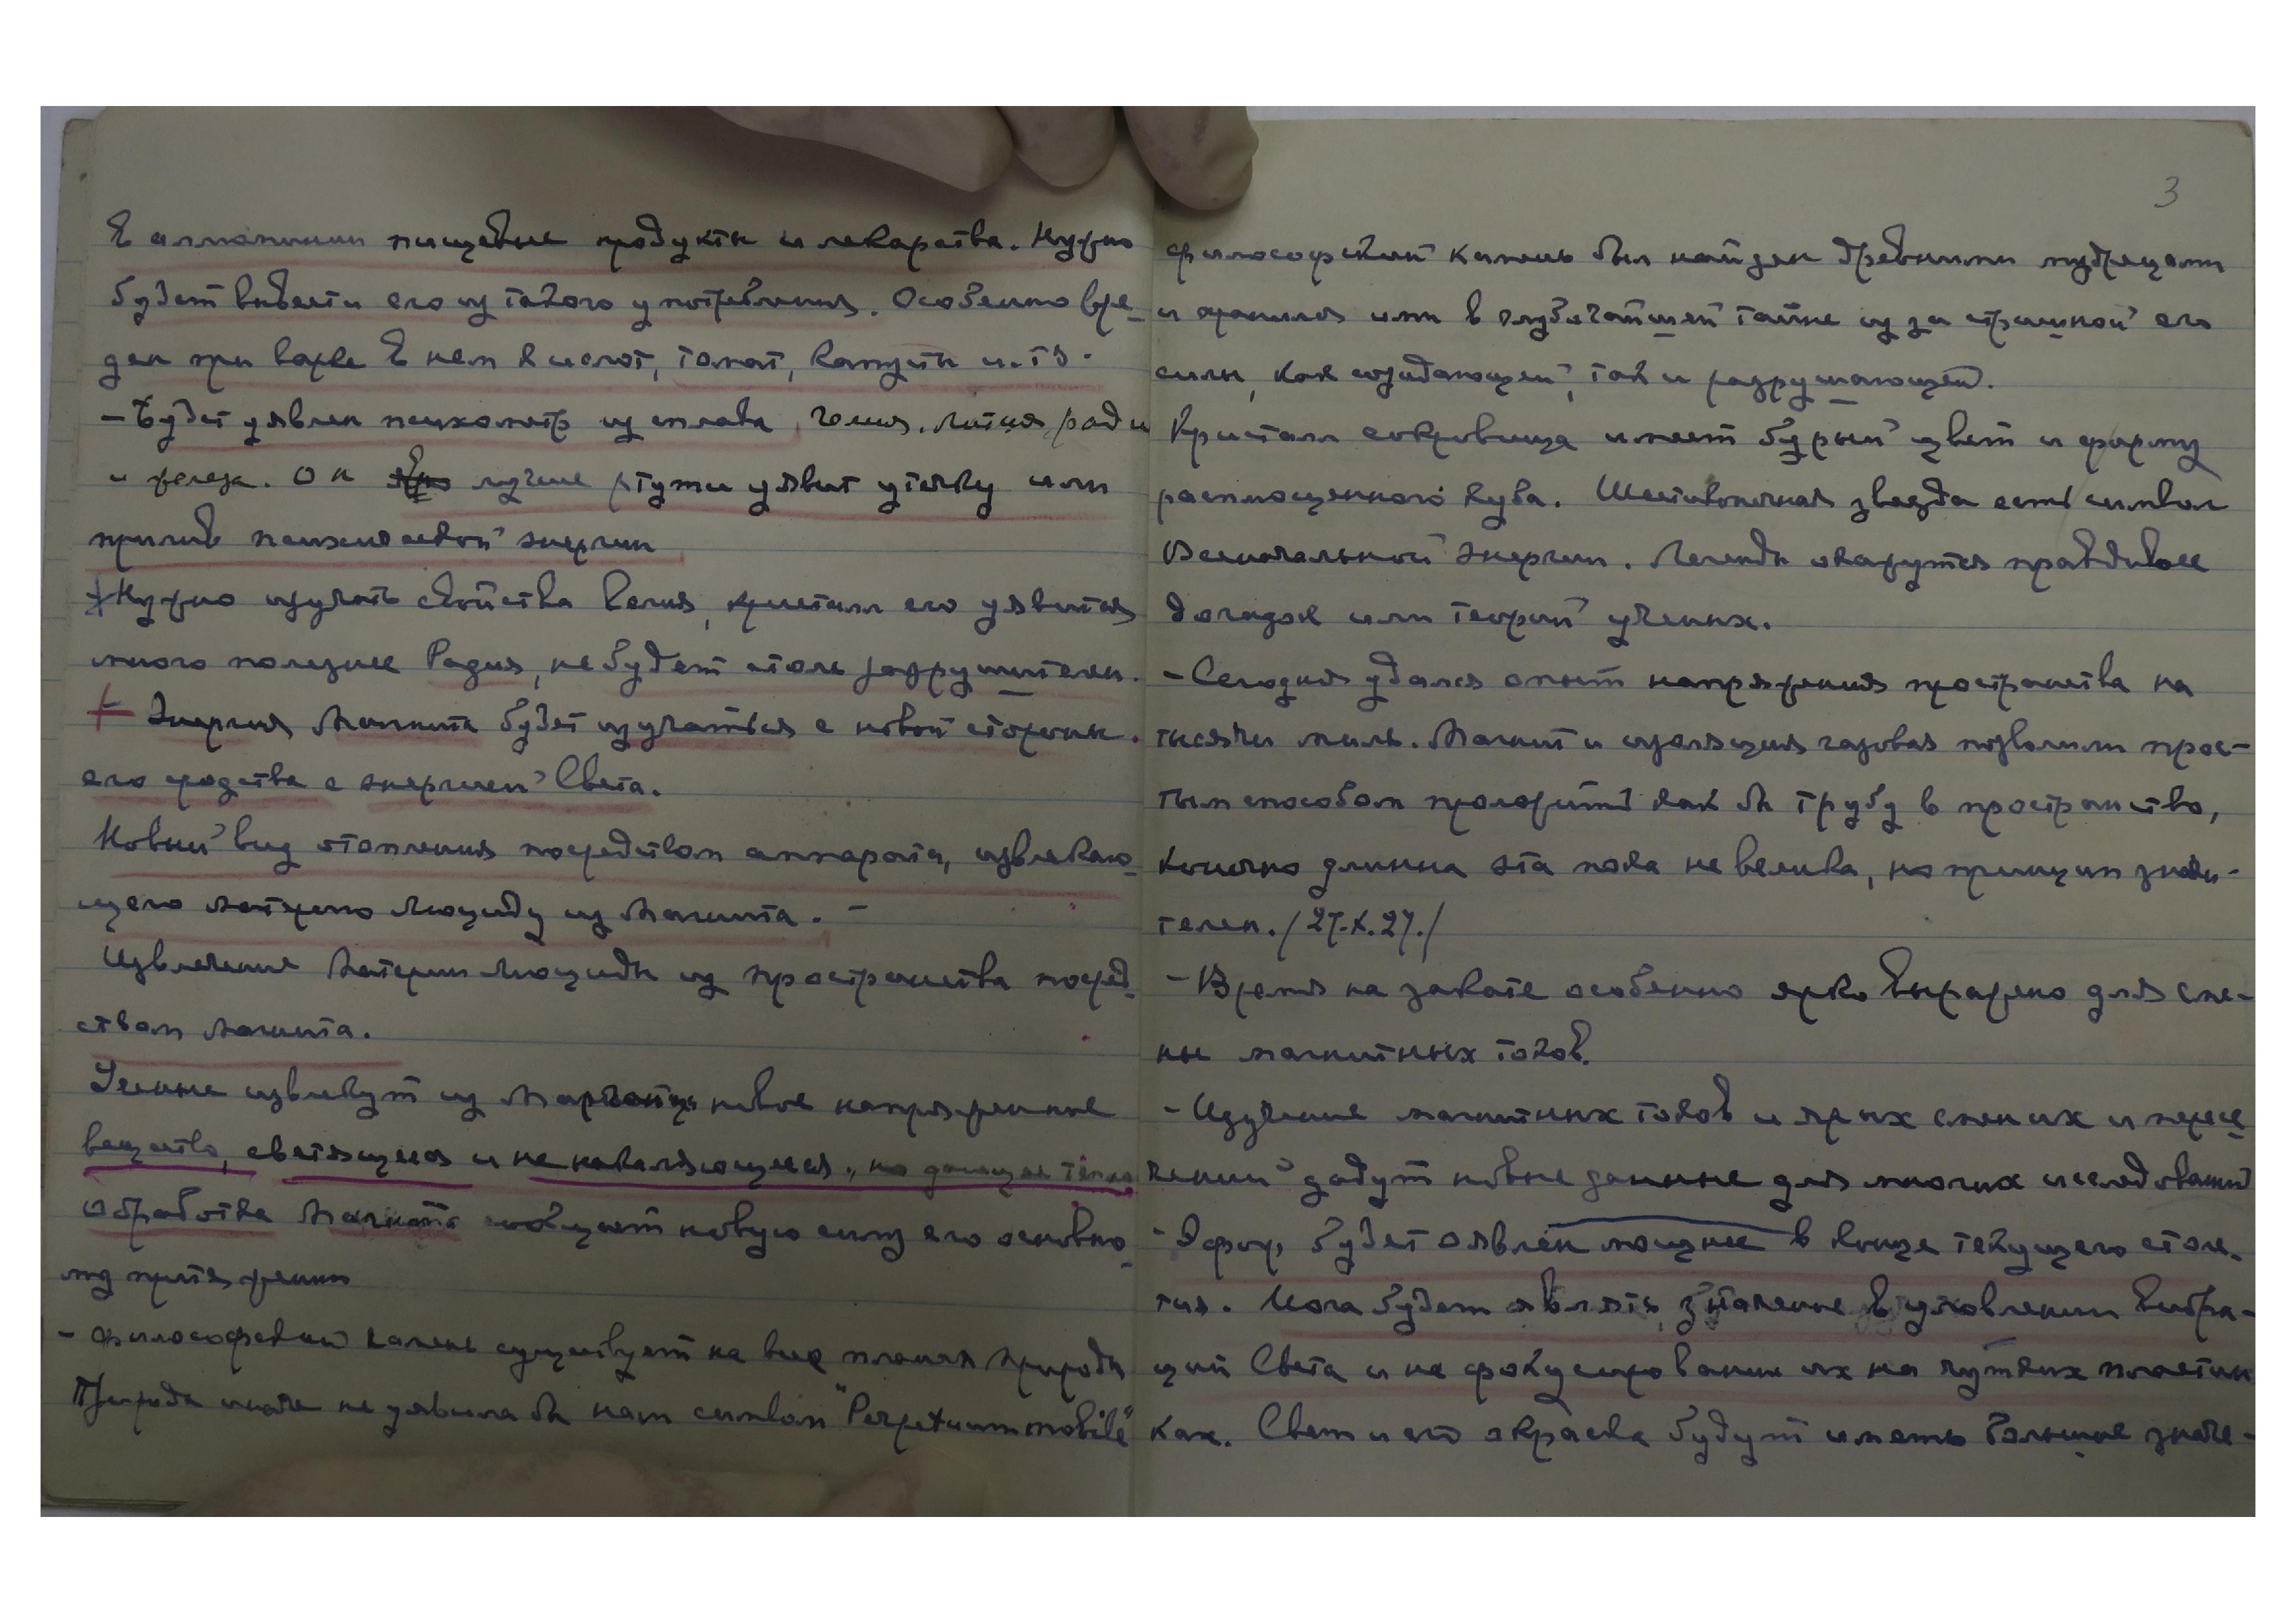 в алюминии пищевые продукты и лекарства. Нужно
будет вывести его из такого употребления. Особенно вре-
ден при варке в нем кислот, томат, капусты и.тд.
– Будет уявлен психометр из сплава, гелия, лития, ради
и железа. Он лучше ртути уявит утечку или
прилив психической энергии
Нужно изучать свойства Гелия, кристалл его уявится
много полезнее Радия, не будет столь разрушителен.
– Энергия Магнита будет изучаться с новой стороны.
его сродства с энергией Света.
Новый вид отопления посредством аппарата, извлекаю-
щего Материю Люциду из Магнита. –
Извлечение Материи Люциды из пространства посред-
ством магнита.
Ученые извлекут из Марганца новое напряженное
вещество, светящееся и не накаляющееся, но дающее тепло
Обработка Магнита сообщает новую силу его основно-
му притяжению
– Философский камень существует на высш планах природы
Природа иначе не уявила бы нам символ "Perpetuum mobile"
3
философский камень был найден древними мудрецами
и хранился ими в глубочайшей тайне из за страшной его
силы, как созидающей, так и разрушающей.
Кристалл сокровища имеет бурый цвет и форму
расплющенного куба. Шестиконечная звезда есть символ
Всеначальной Энергии. Легенды окажутся правдивее
догадок или теорий ученых.
– Сегодня удался опыт напряжения пространства на
тысячи миль. Магнит и изоляция газовая позволили прос-
тым способом проложить как бы трубу в пространство,
конечно длинна эта пока не велика, но принцип значи-
телен. /27.X.27./
– Время на закате особенно ярко выражено для сме-
ны магнитных токов.
– Изучение магнитных токов и ярых смен их и пересе
чений дадут новые данные для многих исследований
– Эфир, будет оявлен мощнее в конце текущего столе-
тия. Йога будет являть значение в уловлении Вибра-
ций Света и не фокусировании их на чутких пластин
ках. Свет и его окраска будут иметь большое значе-